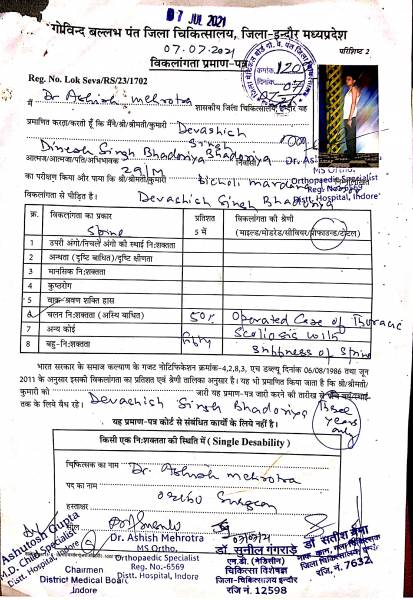 07 JUL 2021
गोविन्द बल्लभ पंत जिला चिकित्सालय, जिला-इन्दौर मध्यप्रदेश
07.07.2021
परिशिष्ट 2
विकलांगता प्रमाण-पत्र
Reg. No. Lok Seva/RS/23/1702
मैं Dr Ashish mehrotra शासकीय जिला चिकित्सालय, इन्दौर यह
प्रमाणित करता/करती हूँ कि मैंने/श्री/श्रीमती/कुमारी Devashich Singh
Dinesh Singh Bhadoriya Bhadoriya Dr. Ashish
आत्मज/आत्मजा/पति/अभिभावक
MS Ortho.
29/M
Orthopaedic Specialist
का परीक्षण किया और पाया कि श्री/श्रीमती/कुमारी Bicholi mardana
Distt. Hospital, Indore
विकलांगता से पीड़ित है। Devashich Singh Bhadoriya
क्र. विकलांगता का प्रकार प्रतिशत 5 में विकलांगता की श्रेणी (माइल्ड/मोडरेड/सीवियर/प्रोफाउन्ड/टोटल)
Spine
1 उपरी अंगो/निचले अंगो की स्थाई निःशक्तता
2 अन्धता (दृष्टि बाधित)/दृष्टि क्षीणता
3 मानसिक निःशक्तता
4 कुष्ठरोग
5 वाक-श्रवण शक्ति हास
चलन निःशक्तता (अस्थि बाधित) 50% Operated Case of Thoracic
7 अन्य कोई fifty Scoliosis with
8 बहु-निःशक्तता Stiffness of Spine
भारत सरकार के समाज कल्याण के गजट नोटिफिकेशन क्रमांक-4,2,8,3, एच डब्ल्यू दिनांक 06/08/1986 तथा जून
2011 के अनुसार इसकी विकलांगता का प्रतिशत एवं श्रेणी तालिका अनुसार है। यह भी प्रमाणित किया जाता है कि श्री/श्रीमती/
कुमारी को जारी यह प्रमाण-पत्र जारी करने की तारीख से
तक के लिये वैध रहे। Devashich Singh Bhadoriya
Three years only
यह प्रमाण-पत्र कोर्ट से संबंधित कार्यो के लिये नहीं है।
किसी एक निःशक्तता की स्थिति में ( Single Desability )
चिकित्सक का नाम Dr. Ashish mehrotra
पद का नाम ortho Surgeon
हस्ताक्षर
Ashutosh Gupta
M.D. Child Specialist
Distt. Hospital, Indore
Chairmen
District Medical Board
Indore
Dr. Ashish Mehrotra
MS Ortho.
Orthopaedic Specialist
Reg. No.-6569
Distt. Hospital, Indore
डॉ. सुनील गंगराड़े
एम.डी. (मेडीसीन)
चिकित्सा विशेषज्ञ
जिला-चिकित्सालय इन्दौर
रजि नं. 12598
डॉ सतीश
रजि. नं. 7632